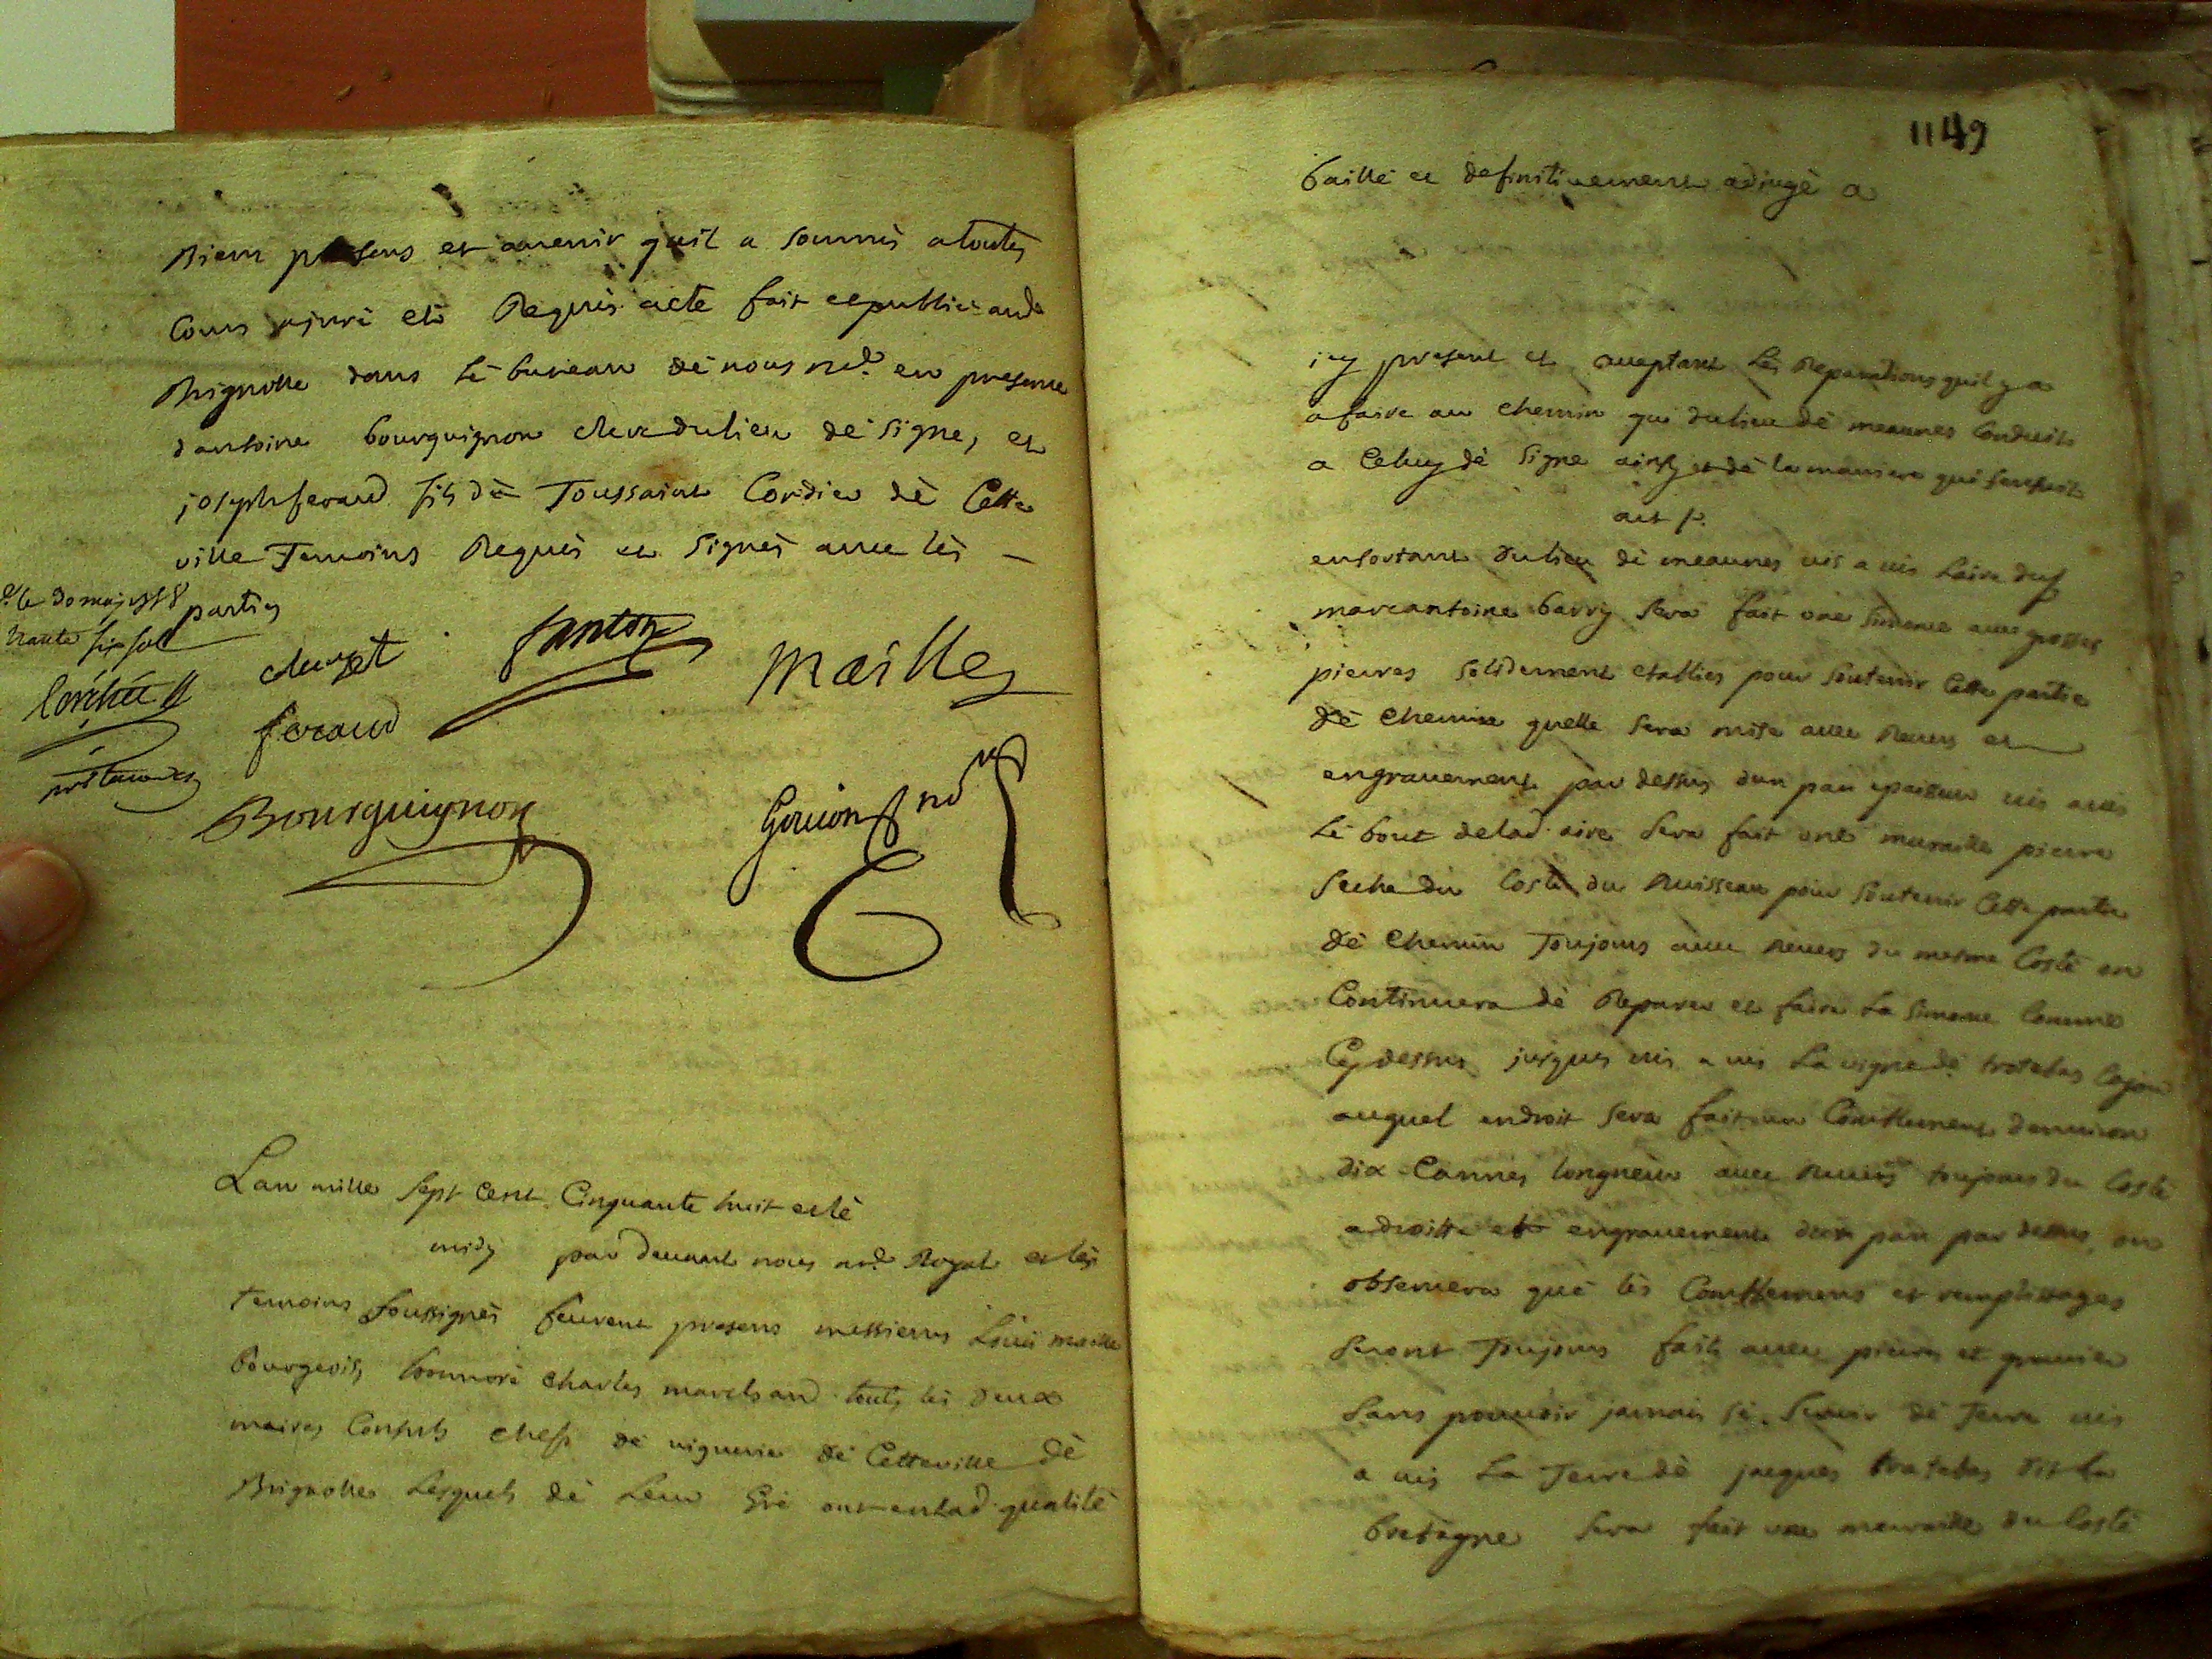 Biens presens et avenir quil a soumis a toutes
Cours a juré et Requis acte fait et publié aud
Brignolle dans le bureau de nous nre. en presence
dantoine bourguignon clerc du lieu de signe, et
joseph feraud fils de Toussaint Cordier dè Cette
ville Temoins Requis et Signès avec lès
parties
mailles
feraud
Bourguignon
Goujon
Lan mille sept cent Cinquante huit et lè
midy par devant nous nre. Royal et lès
temoins soussignès feurent presens messieurs Louis maille
bourgeois, honnoré Charles marchand touts les deux
maires Consuls chefs de viguerie dè Cette ville dè
Brignolles Lesquels dè Leur Gré ont en lad. qualitè
1149
baillé et definitivement adjugè a
icy present et acceptant Les Reparations quil y a
a faire au chemin qui du lieu dè meaunes Conduit
a Celuy dè Signe ainsy et dè la maniere qui sensuit
art p.
en sortant du lieu dè meaunes vis a vis Laire du sr
marcantoine barry sera fait une avec grosses
pierres solidement etablies pour soutenir Cette partie
dè chemin quelle sera mise avec Revers et
engravement par dessus dun pan epaisseur vis avis
Lè bout de lad. aire sera fait une muraille pierre
seche du Costè du Ruisseau pour soutenir Cette partie
dè chemin Toujours avec Revers du mesme Costè on
Continuera dè Reparer et faire La Comme
Cy dessus jusques vis a vis La vigne dè trotabas
auquel endroit sera fait un Comblement denviron
dix Cannes longueur avec Revers toujours du Costè
a droitte et engravement dun pan par dessus on
observera què lès Comblemens et remplissages
seront Toujours faits avec pierres et gravier
sans pouvoir jamais sè servir dè Terre vis
a vis La Terre dè jacques trotabas dit La
bretagne sera fait une muraille du Costè